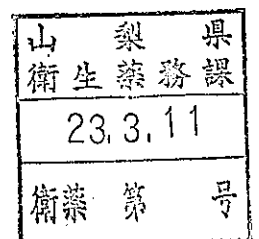 山梨県
衛生薬務課
23.3.11
衛薬第 号